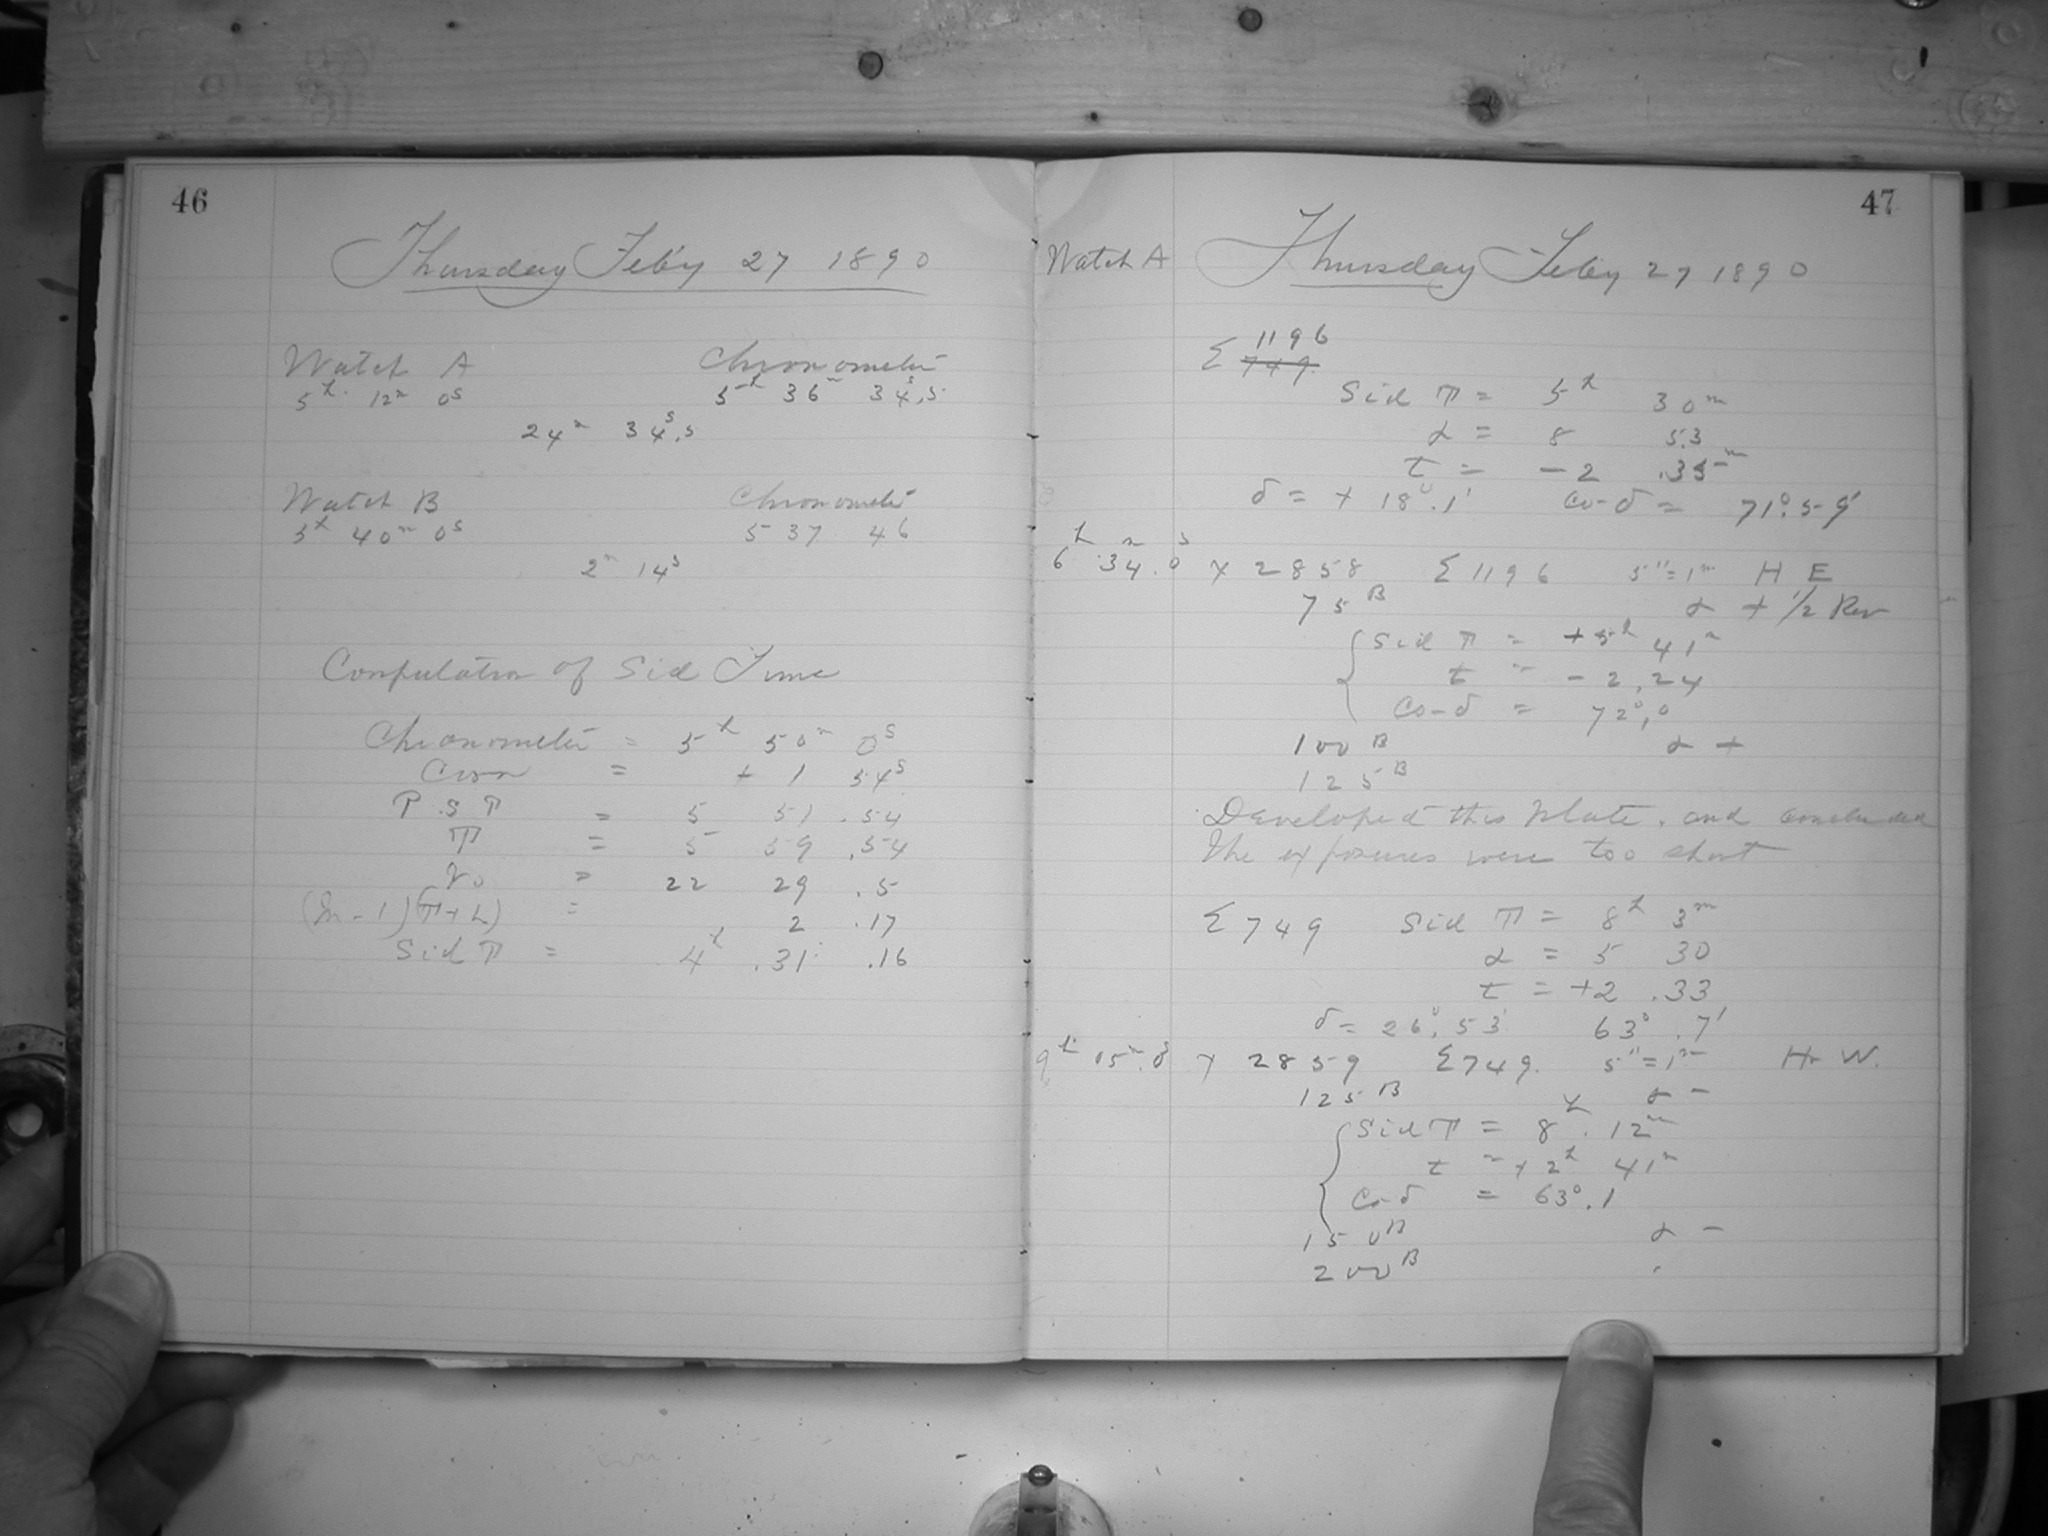 46
Thursday Feb'y 27 1890
Watch A Chronometer
5h 12m 0s 5h 36m 34s.5
24m 34s.5
Watch B Chronometer
5h 40m 0s 5 37 46
2m 14s
Computation of Sid Time
Chronometer = 5h 50m 0s
Corr = + 1 54s
P.S.T = 5 51.54
T = 5 59.54
= 22 29.5
(m-1)(T+L) = 2.17
Sid T = 4h.31.16
47
Watch A Thursday Feb'y 27 1890
1196
Σ 749
Sid T = 5h 30m
α = 8 53
t = -2 .35m
δ = + 18°.1' Co-δ = 71°.59'
6h 34m.0s X 2858 Σ 1196 5"=1m H E
75B α + 1/2 Rev
Sid T = +5h 41m
t = -2.24
Co-δ = 72°.0
100B α +
125B
Developed this plate, and concluded
the exposures were too short
Σ 749 Sid T = 8h 3m
α = 5 30
t = +2 .33
δ = 26°.53' 63°.7'
9h 05m.0 X 2859 Σ749. 5"=1m H W.
125B α -
Sid T = 8h.12m
t = +2h 41m
Co-δ = 63°.1
150B α -
200B